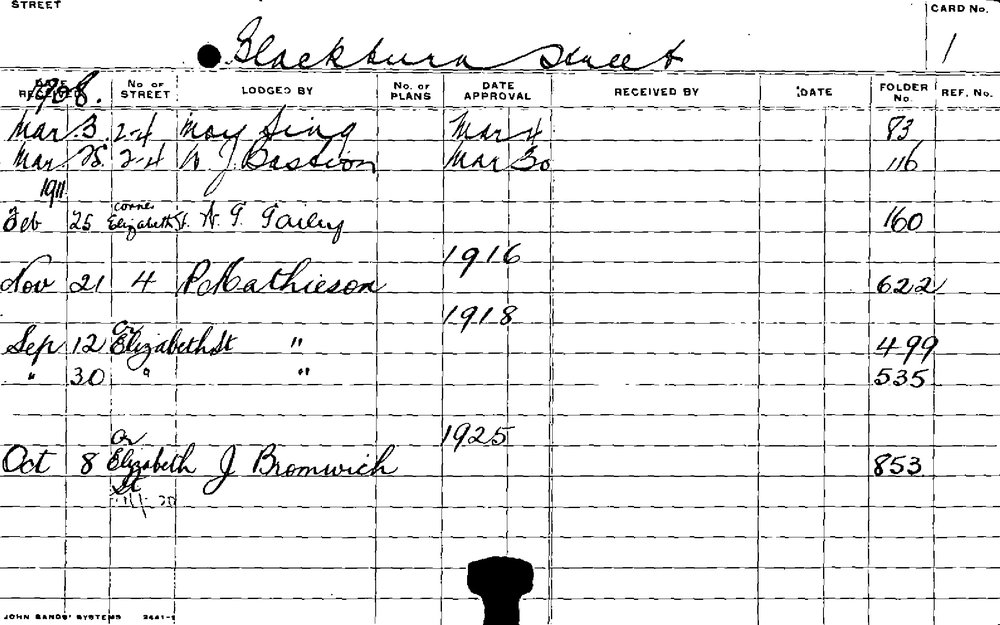 STREET
CARD No.
Blackburn Street
1
DATE RECEIVED No. OF STREET LODGED BY No. OF PLANS DATE APPROVAL RECEIVED BY DATE FOLDER No. REF. No.
1908.
Mar 3 2-4 Moy Sing Mar 4 83
Mar 28 2-4 W J Bastion Mar 30 116
1911
corner
Feb 25 Elizabeth St. 160
1916
Nov 21 4 P Mathieson 622
1918
Cr
Sep 12 Elizabeth St " 499
" 30 " " 535
1925
Cr
Oct 8 Elizabeth J Bromwich 853
St
JOHN SANDS' SYSTEMS